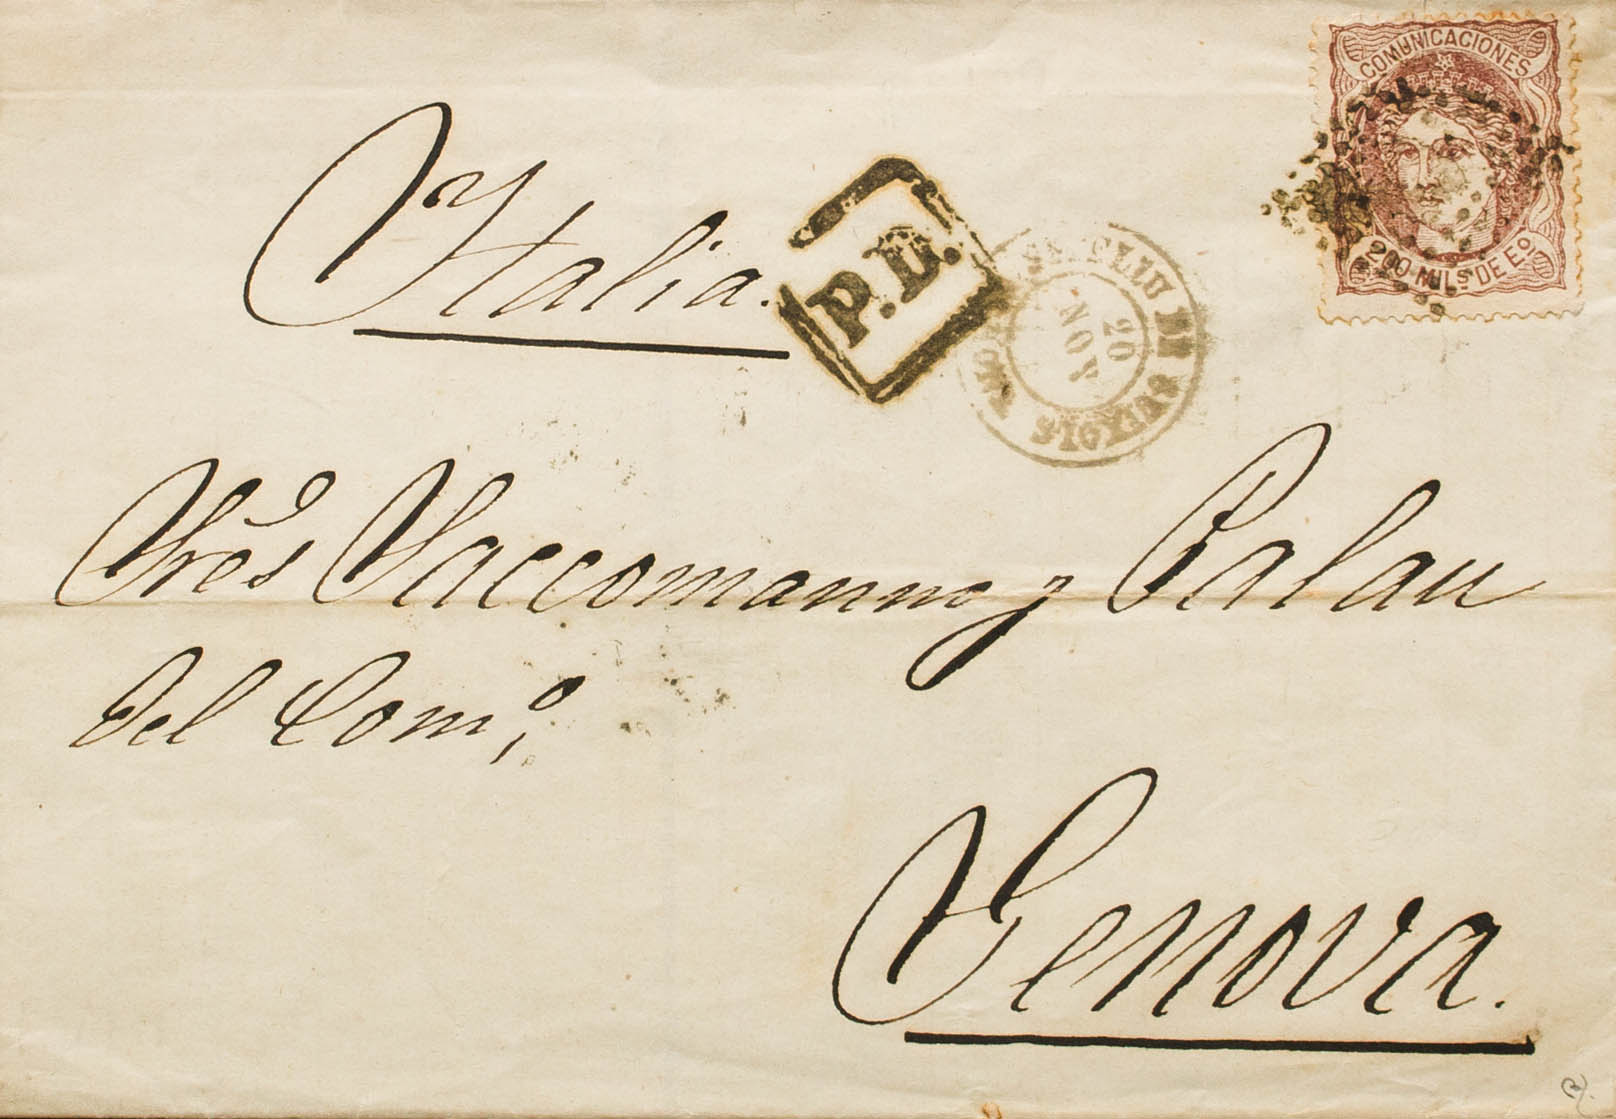 COMUNICACIONES
200 MILS DE Eº
Ytalia.
P.D.
S. FELIU DE GUIXOLS
20
NOV
Sres Saccomanno y Palau
del Comº,
Genova.